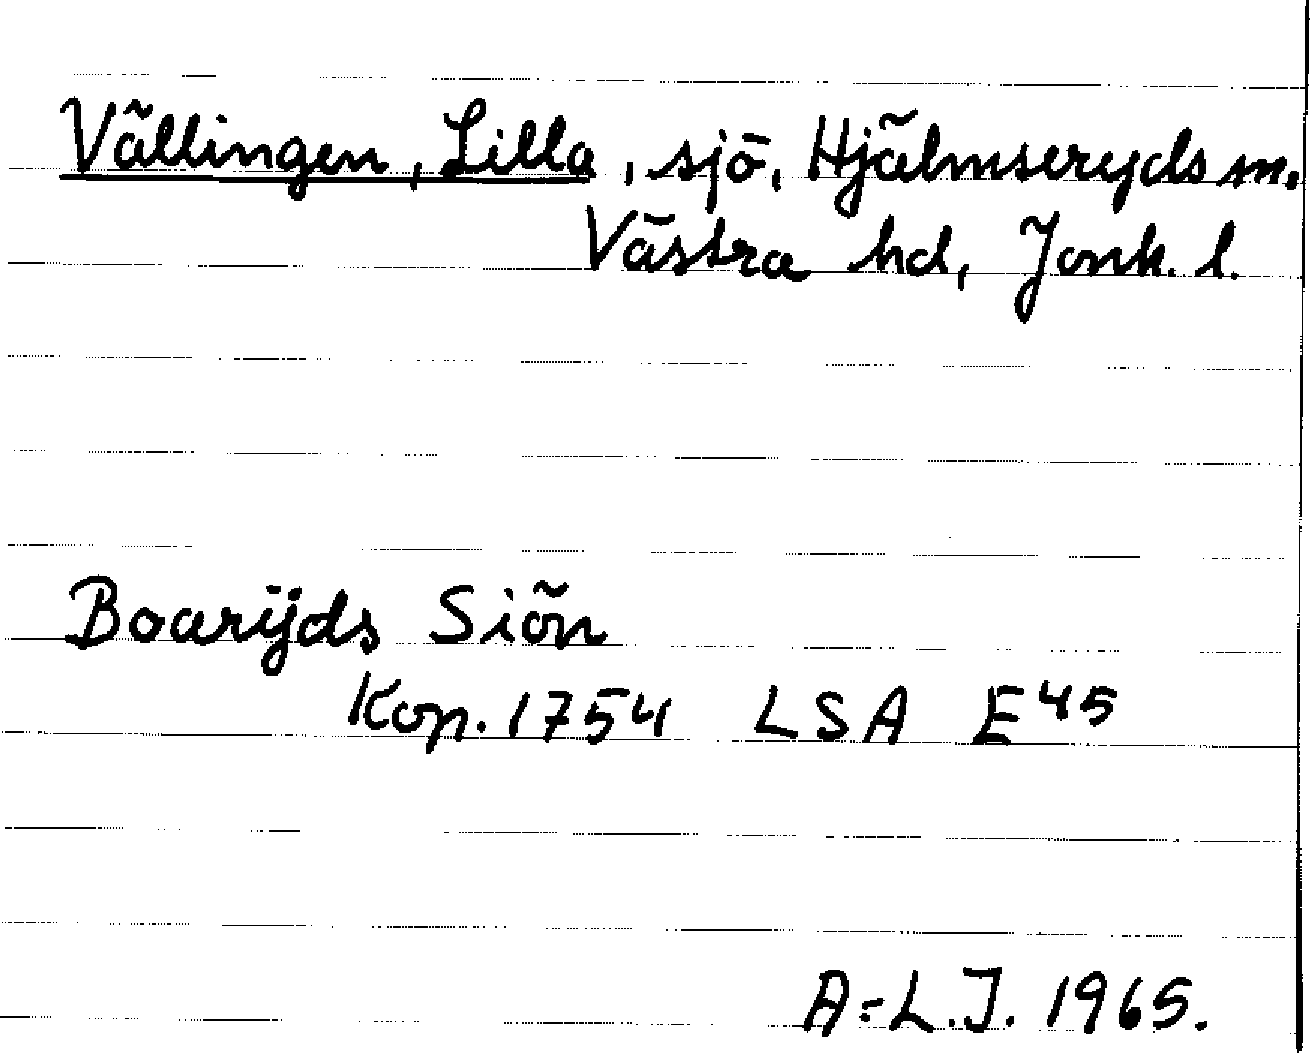 Vällingen, Lilla, sjö, Hjälmseryds sn.
Västra hd, Jönk. l.
Boarÿds Siön
Kop. 1754 LSA E45
A-L.J. 1965.